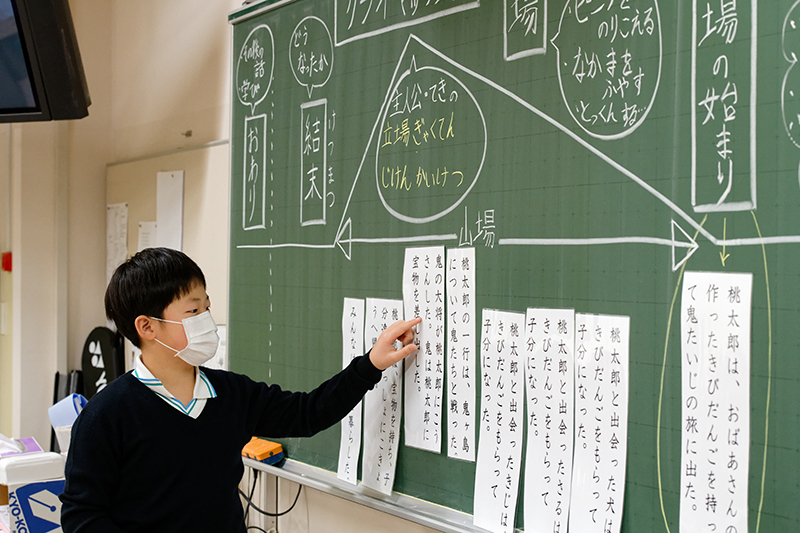 山場の始まり
ピンチを
のりこえる
・なかまを
ふやす
・とっくんする…
山場
主人公・てきの
立場ぎゃくてん
じけんかいけつ
どう
なったか
けつまつ
結末
その後の話
学び
おわり
桃太郎は、おばあさんの
作ったきびだんごを持っ
て鬼たいじの旅に出た。
桃太郎と出会った犬は
きびだんごをもらって
子分になった。
桃太郎と出会ったさるは
きびだんごをもらって
子分になった。
桃太郎と出会ったきじは
きびだんごをもらって
子分になった。
桃太郎の一行は、鬼ヶ島
について鬼たちと戦った
鬼の大将が桃太郎にこう
さんした。鬼は桃太郎に
宝物を
た。
宝物を持ち
みんな
暮らした。
KYO-KO